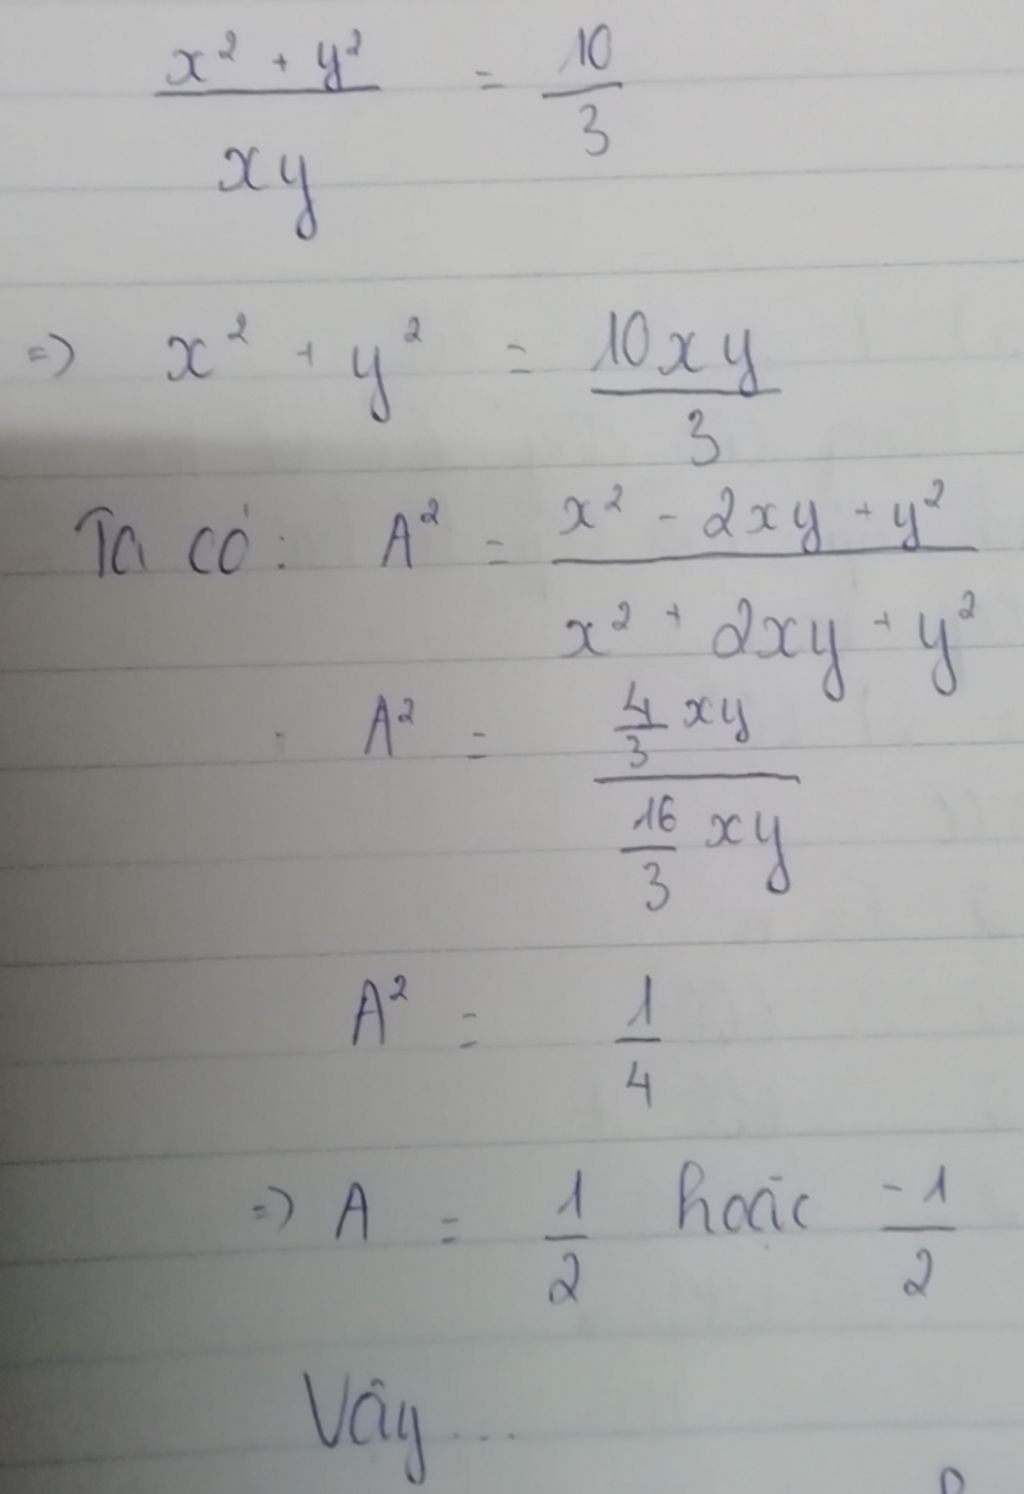 x² + y² / xy = 10 / 3
=> x² + y² = 10xy / 3
Ta có: A² = x² - 2xy + y² / x² + 2xy + y²
A² = 4/3 xy / 16/3 xy
A² = 1 / 4
=> A = 1/2 hoặc -1/2
Vậy ...